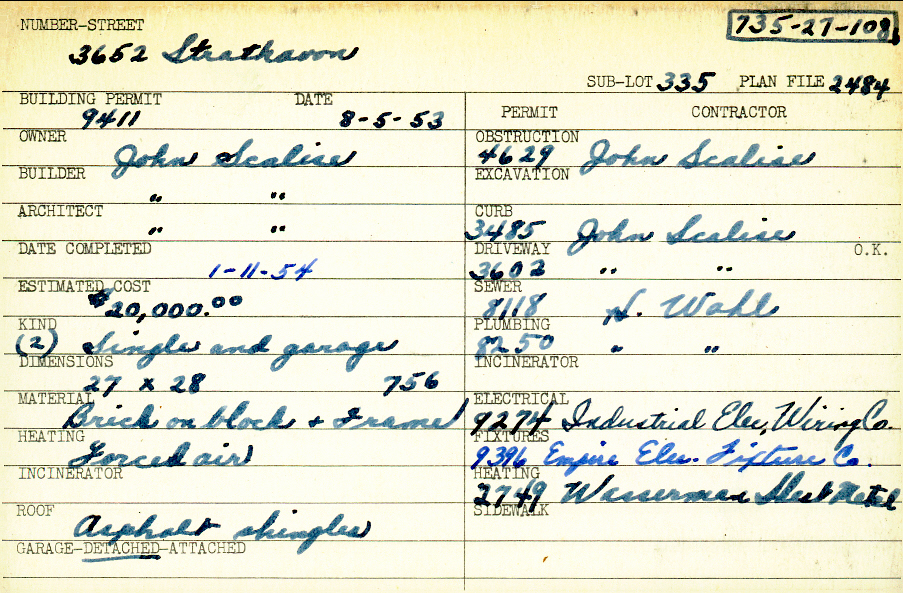 735-27-108
NUMBER-STREET
3652 Strathavon
SUB-LOT 335 PLAN FILE 2484
BUILDING PERMIT DATE
9411 8-5-53
OWNER
John Scalise
BUILDER
" "
ARCHITECT
" "
DATE COMPLETED
1-11-54
ESTIMATED COST
$20,000.00
KIND
(2) Single and garage
DIMENSIONS
27 x 28 756
MATERIAL
Brick on block + Frame
HEATING
Forced air
INCINERATOR
ROOF
Asphalt shingles
GARAGE-DETACHED-ATTACHED
PERMIT CONTRACTOR
OBSTRUCTION
4629 John Scalise
EXCAVATION
CURB
3485 John Scalise
DRIVEWAY O.K.
3602 " "
SEWER
8118 H. Wahl
PLUMBING
8250 " "
INCINERATOR
ELECTRICAL
9274 Industrial Elec, Wiring Co.
FIXTURES
9396 Empire Elec. Fixture Co.
HEATING
2749 Wasserman Sheet Metal
SIDEWALK